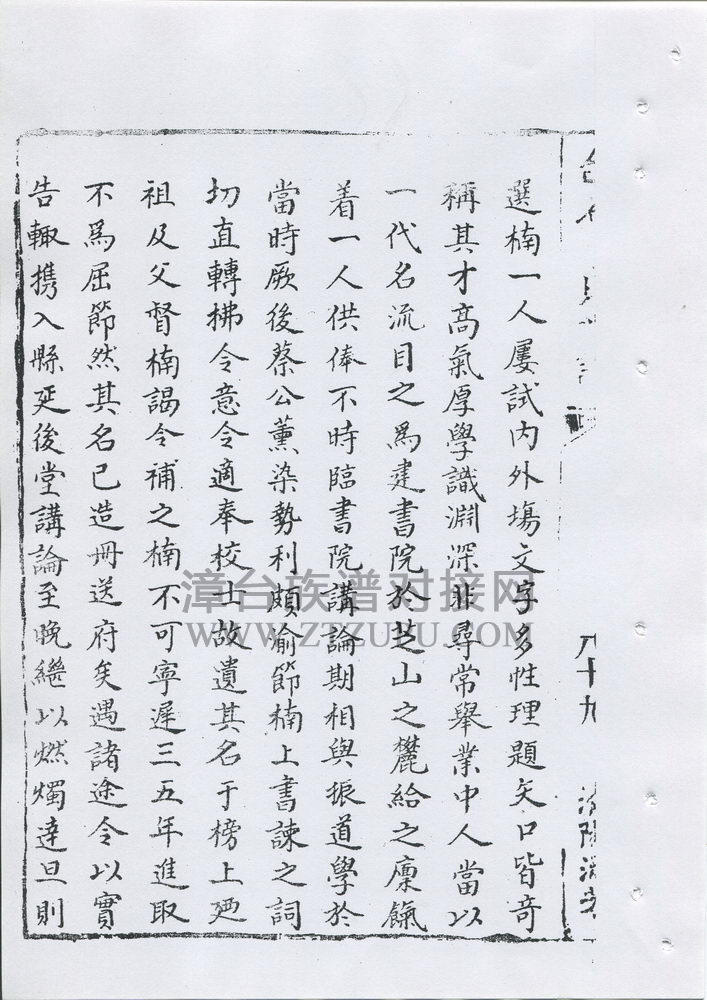 八十九
選楠一人屢試內外場文字多性理題矢口皆奇
稱其才高氣厚學識淵深非尋常舉業中人當以
一代名流目之爲建書院於芝山之麓給之廩餼
着一人供俸不時臨書院講論期相與振道學於
當時厥後蔡公薰染勢利頗渝節楠上書諫之詞
切直轉拂令意令適奉校士故遺其名于榜上廼
祖及父督楠謁令補之楠不可寧遲三五年進取
不爲屈節然其名已造冊送府矣遇諸途令以實
告輙携入縣延後堂講論至晚繼以燃燭達旦則
漳台族谱对接网
WWW.ZTZUPU.COM